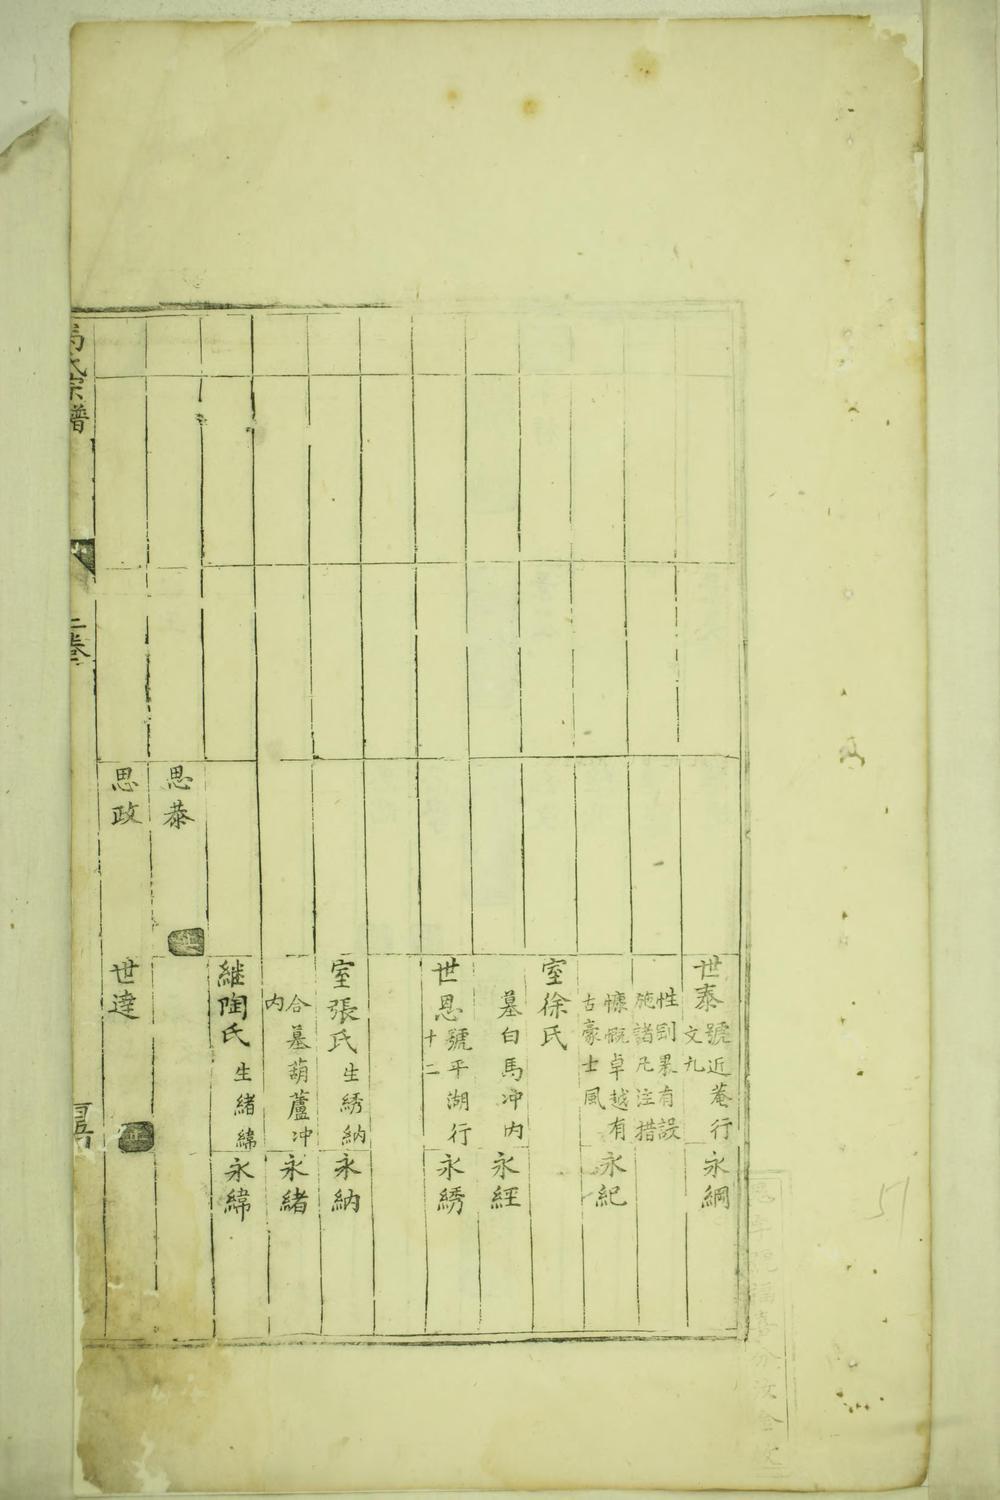 世泰號近菴行
文九
性剛果有設
施諸凡注措
慷慨卓越有
古豪士風
室徐氏
墓白馬冲内
世恩號平湖行
十二
室張氏生綉納
合墓葫蘆冲
内
継陶氏生緒緯
永綱
永紀
永經
永綉
永納
永緒
永緯
思恭
思政
世達
氏宗譜
上卷
51